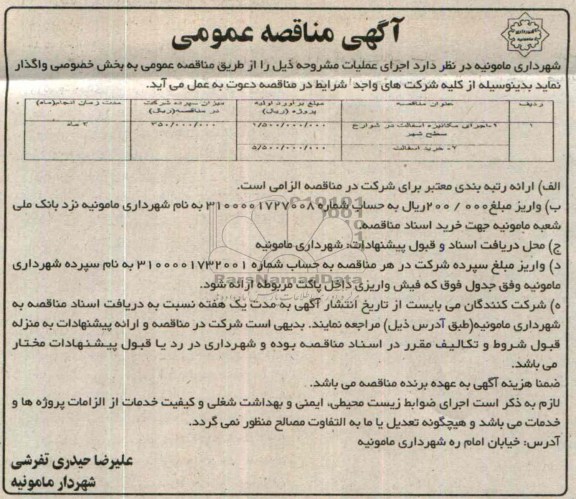 آگهی مناقصه عمومی
شهرداری مامونیه در نظر دارد اجرای عملیات مشروحه ذیل را از طریق مناقصه عمومی به بخش خصوصی واگذار
نماید بدینوسیله از کلیه شرکت های واجد شرایط در مناقصه دعوت به عمل می آید.
ردیف عنوان مناقصه مبلغ برآورد اولیه میزان سپرده شرکت مدت زمان انجام(ماه)
پروژه (ریال) در مناقصه(ریال)
۱ ۱-اجرای مکانیزه اسفالت در شوارع ۱/۵۰۰/۰۰۰/۰۰۰ ۳۵۰/۰۰۰/۰۰۰ ۳ ماه
سطح شهر
۲- خرید اسفالت ۵/۵۰۰/۰۰۰/۰۰۰
الف) ارائه رتبه بندی معتبر برای شرکت در مناقصه الزامی است.
ب) واریز مبلغ ۲۰۰/۰۰۰ ریال به حساب شماره ۳۱۰۰۰۰۱۷۲۷۰۰۸ به نام شهرداری مامونیه نزد بانک ملی
شعبه مامونیه جهت خرید اسناد مناقصه
ج) محل دریافت اسناد و قبول پیشنهادات: شهرداری مامونیه
د) واریز مبلغ سپرده شرکت در هر مناقصه به حساب شماره ۳۱۰۰۰۰۱۷۳۲۰۰۱ به نام سپرده شهرداری
مامونیه وفق جدول فوق که فیش واریزی داخل پاکت مربوطه ارائه شود.
ه) شرکت کنندگان می بایست از تاریخ انتشار آگهی به مدت یک هفته نسبت به دریافت اسناد مناقصه به
شهرداری مامونیه(طبق آدرس ذیل) مراجعه نمایند. بدیهی است شرکت در مناقصه و ارائه پیشنهادات به منزله
قبول شروط و تکالیف مقرر در اسناد مناقصه بوده و شهرداری در رد یا قبول پیشنهادات مختار
می باشد.
ضمنا هزینه آگهی به عهده برنده مناقصه می باشد.
لازم به ذکر است اجرای ضوابط زیست محیطی، ایمنی و بهداشت شغلی و کیفیت خدمات از الزامات پروژه ها و
خدمات می باشد و هیچگونه تعدیل یا ما به التفاوت مصالح منظور نمی گردد.
آدرس: خیابان امام ره شهرداری مامونیه
علیرضا حیدری تفرشی
شهردار مامونیه